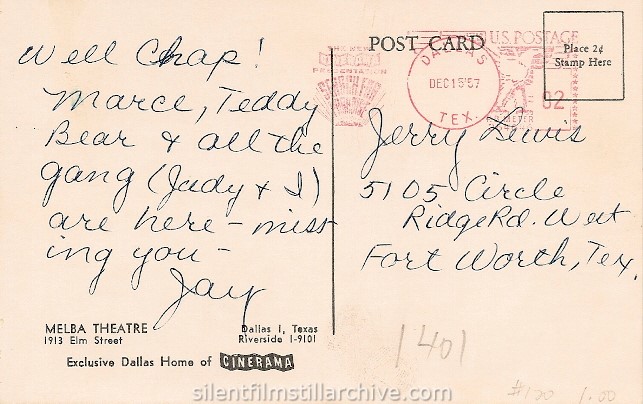 Well Chap!
Marce, Teddy
Bear & all the
gang (Judy & I)
are here - miss
ing you -
Jay
MELBA THEATRE
1913 Elm Street
Dallas 1, Texas
Riverside 1-9101
Exclusive Dallas Home of CINERAMA
POST CARD
U.S. POSTAGE
Place 2¢
Stamp Here
CINERAMA
PRESENTATION
DALLAS
DEC15'57
TEX.
02
METER
Jerry Lewis
5105 Circle
Ridge Rd. West
Fort Worth, Tex.
1401
$120 1.00
silentfilmstillarchive.com